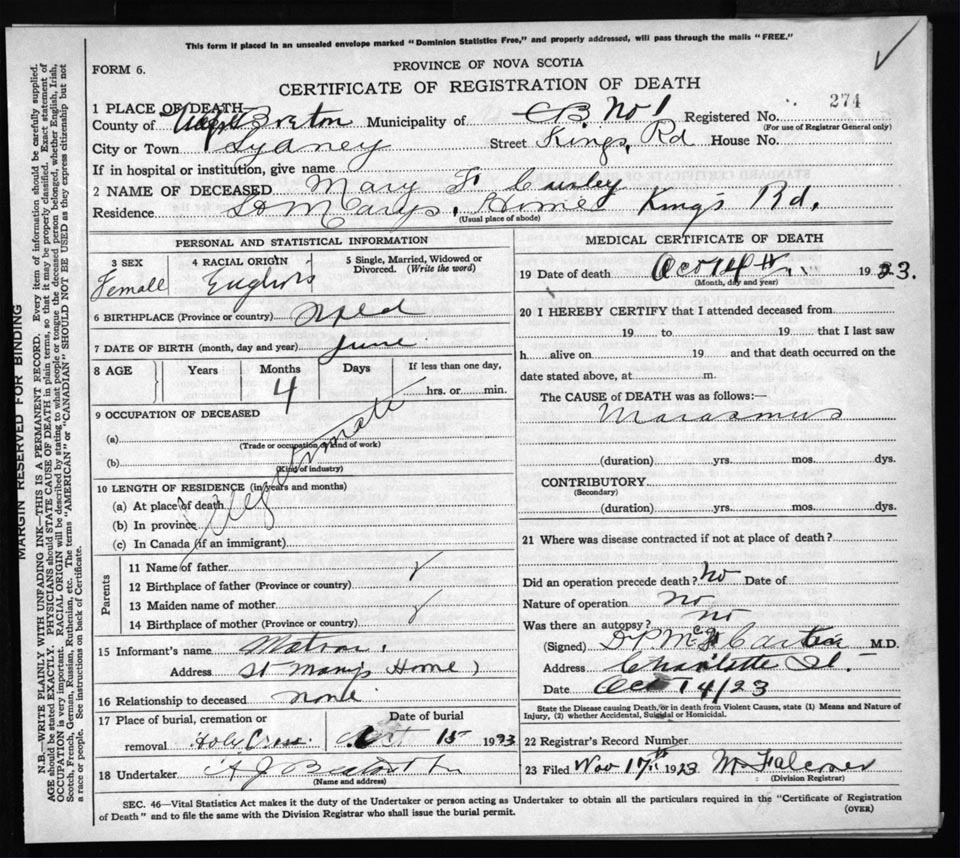 This form if placed in an unsealed envelope marked "Dominion Statistics Free," and properly addressed, will pass through the mails "FREE."
FORM 6.
PROVINCE OF NOVA SCOTIA
CERTIFICATE OF REGISTRATION OF DEATH
274
1 PLACE OF DEATH
County of Cape Breton Municipality of CB No 1 Registered No.
(For use of Registrar General only)
City or Town Sydney Street Kings, Rd House No.
If in hospital or institution, give name
2 NAME OF DECEASED Mary
Residence St Marys, Home Kings Rd,
(Usual place of abode)
PERSONAL AND STATISTICAL INFORMATION
3 SEX 4 RACIAL ORIGIN 5 Single, Married, Widowed or Divorced. (Write the word)
Female English
6 BIRTHPLACE (Province or country) Nfld
7 DATE OF BIRTH (month, day and year) June
8 AGE Years Months Days If less than one day,
4 hrs. or min.
9 OCCUPATION OF DECEASED
(a)
(Trade or occupation or kind of work)
(b)
(Kind of industry)
Illegitimate
10 LENGTH OF RESIDENCE (in years and months)
(a) At place of death
(b) In province
(c) In Canada (if an immigrant)
Parents
11 Name of father ✓
12 Birthplace of father (Province or country)
13 Maiden name of mother ✓
14 Birthplace of mother (Province or country)
15 Informant's name Matron,
Address St Marys Home
16 Relationship to deceased none
17 Place of burial, cremation or Date of burial
removal Holy Cross. Oct 15 1923
18 Undertaker A J
(Name and address)
MEDICAL CERTIFICATE OF DEATH
19 Date of death Oct 14th 1923.
(Month, day and year)
20 I HEREBY CERTIFY that I attended deceased from
19 to 19 that I last saw
h alive on 19 and that death occurred on the
date stated above, at m.
The CAUSE of DEATH was as follows:—
Marasmus
(duration) yrs. mos. dys.
CONTRIBUTORY
(Secondary)
(duration) yrs. mos. dys.
21 Where was disease contracted if not at place of death?
Did an operation precede death? No Date of
Nature of operation no
Was there an autopsy? no
(Signed) M.D.
Address Charlotte St.
Date Oct 14/23
State the Disease causing Death, or in death from Violent Causes, state (1) Means and Nature of Injury, (2) whether Accidental, Suicidal or Homicidal.
22 Registrar's Record Number
23 Filed Nov 17th 1923
(Division Registrar)
SEC. 46—Vital Statistics Act makes it the duty of the Undertaker or person acting as Undertaker to obtain all the particulars required in the "Certificate of Registration
of Death" and to file the same with the Division Registrar who shall issue the burial permit. (OVER)
MARGIN RESERVED FOR BINDING
N.B.—WRITE PLAINLY WITH UNFADING INK—THIS IS A PERMANENT RECORD. Every item of information should be carefully supplied.
AGE should be stated EXACTLY. PHYSICIANS should STATE CAUSE OF DEATH in plain terms, so that it may be properly classified. Exact statement of
OCCUPATION is very important. RACIAL ORIGIN will be described by stating to what people or tongue the deceased person belonged, whether English, Irish,
Scotch, French, German, Russian, Ruthenian, etc. The terms "AMERICAN" or "CANADIAN" SHOULD NOT BE USED as they express citizenship but not
a race or people. See instructions on back of Certificate.